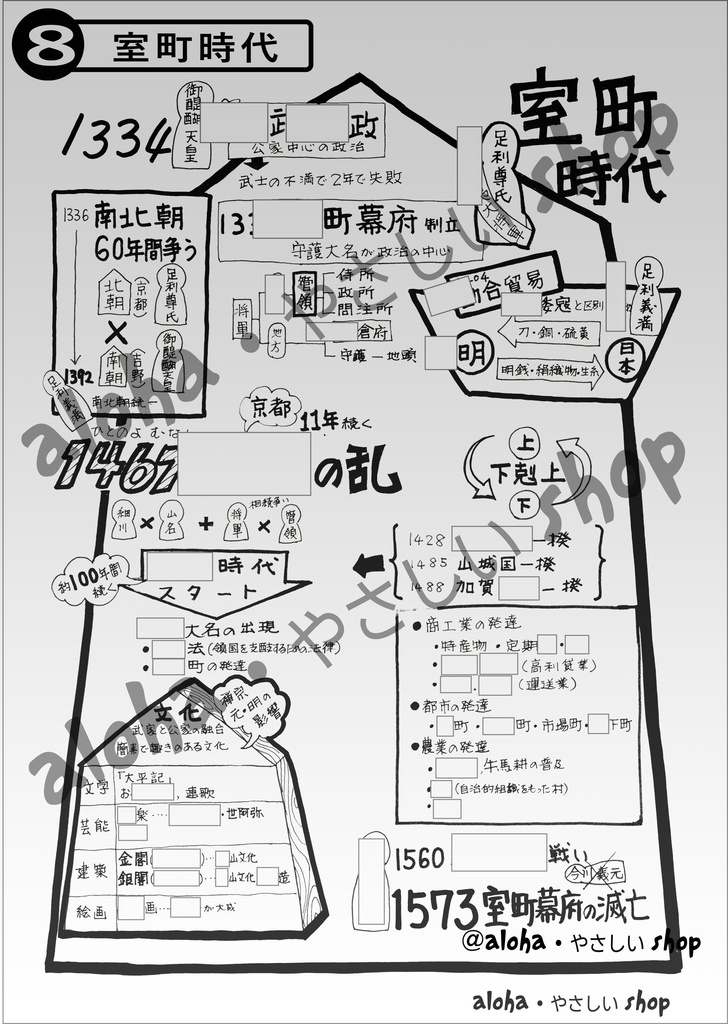 8 室町時代
室町
時代
1334
御醍醐天皇
政
公家中心の政治
武士の不満で2年で失敗
足利尊氏
町幕府 制立
守護大名が政治の中心
1336 南北朝
60年間争う
北朝 (京都) 足利尊氏
×
南朝 (吉野) 御醍醐天皇
1392
南北朝統一
足利義満
将軍
管領
侍所
政所
問注所
地方
倉府
守護 — 地頭
合貿易
倭寇と区別
足利義満
刀・銅・硫黄
明
日本
明銭・絹織物・生糸
京都
11年続く
ひとのよむな
1467
の乱
細川 × 山名 + 将軍 × 管領
相続争い
上
下剋上
下
1428 一揆
1485 山城国一揆
1488 加賀 一揆
約100年間続く
時代
スタート
大名の出現
・ 法(領国を支配するための法律)
・ 町の発達
●商工業の発達
・特産物・定期 ・
・ (高利貸業)
・ ・ (運送業)
●都市の発達
・ 町・ 町・市場町・ 下町
●農業の発達
・ ,牛馬耕の普及
・ (自治的組織をもった村)
・
文化
禅宗
元・明の
影響
武家と公家の融合
簡素で趣きのある文化
文字 「太平記」
お ,連歌
芸能 楽… ・世阿弥
建築 金閣( )… 山文化
銀閣( )… 山文化 造
絵画 画… が大成
1560 戦い
今川義元
1573室町幕府の滅亡
@aloha・やさしい shop
aloha・やさしい shop
aloha・やさしい shop
aloha・やさしい shop